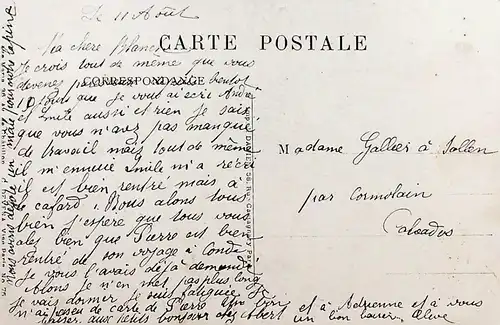 Le 11 Août
CARTE POSTALE
Ma chère Blanche
Je crois tout de même que vous
CORRESPONDANCE
devenez bientot
10 jours que je vous ai écrit André
et Emile aussi et rien je sais
que vous n'avez pas manqué
de travail mais tout de même
il m'ennuie Emile m'a récri
il est bien rentré mais à
le cafard. Nous alons tous
bien j'espère que tous vous
alez bien que Pierre est bien
rentré de son voyage à Condé
Je vous l'avais déjà demandé
Alons je n'en met pas plus long
Je vais dormir je suis fatiguée
n'ai pas eu de carte de Pierre
baiser aux petits bonjour chez Albert
et à Adrienne et à vous
un bon baiser. Olive
Madame Gallier à Sallen
par Cormolain
Calvados